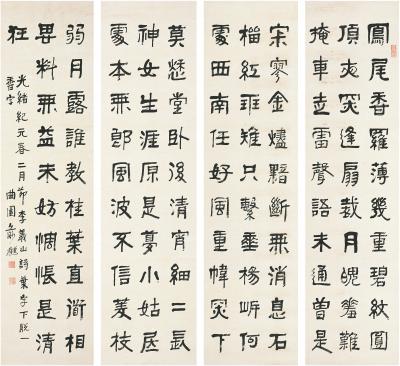 鳳尾香羅薄幾重碧紋圓
頂夜深縫扇裁月魄羞難
掩車走雷聲語未通曾是
宋寥金燼黯斷無消息石
榴紅班騅只繫垂楊岍何
處西南任好風重幃深下
莫愁堂臥後清宵細二長
神女生涯原是夢小姑居
處本無郎風波不信菱枝
弱月露誰教桂葉直衜相
思料無益未妨惆悵是清
狂
光緒紀元春二月節李義山詩葉字下脫一
香字
曲園俞樾